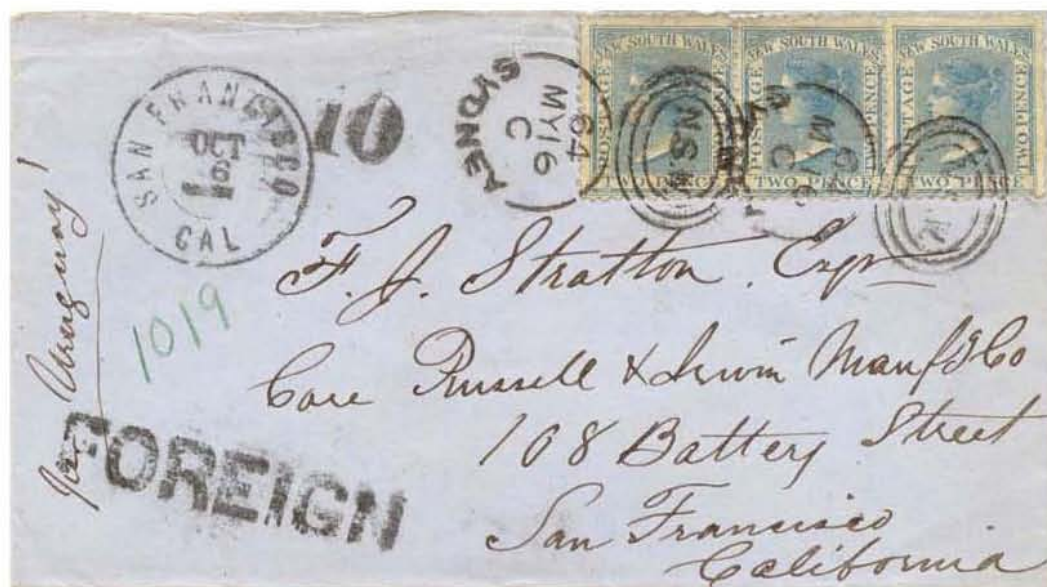 SAN FRANCISCO
OCT
1
CAL
10
SYDNEY
MY 16
64
C
NEW SOUTH WALES
POSTAGE
TWO PENCE
NEW SOUTH WALES
POSTAGE
TWO PENCE
NEW SOUTH WALES
POSTAGE
TWO PENCE
NSW
per
1019
FOREIGN
F. J. Stratton Esqr
Care Russell & Irwin Manfg Co
108 Battery Street
San Francisco
California